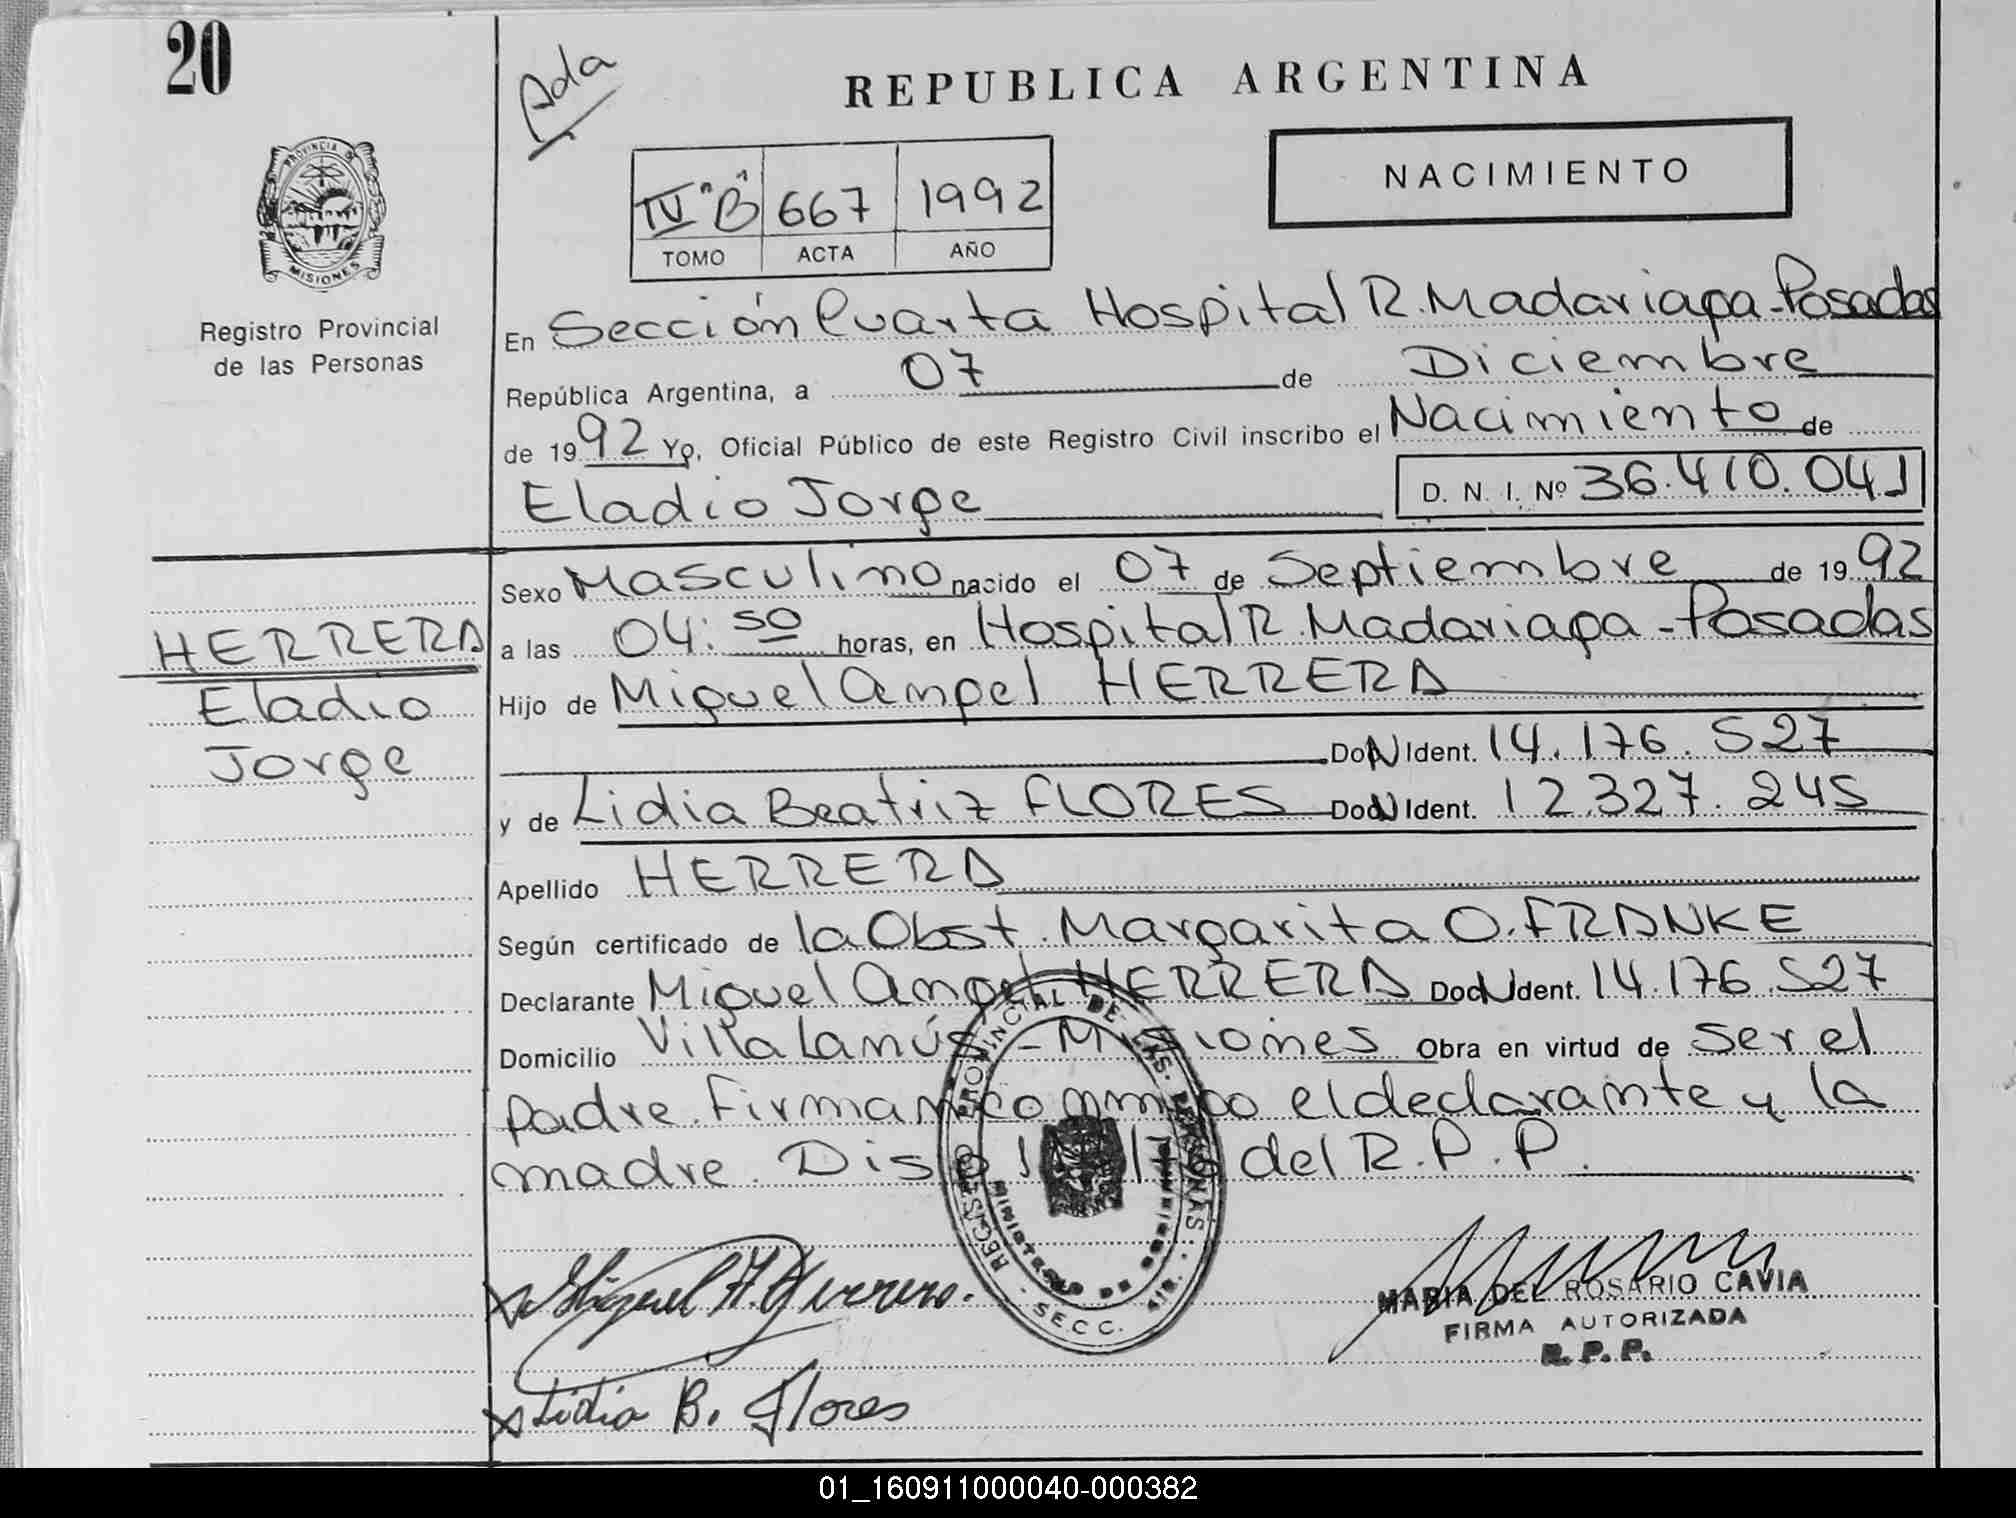 20
Ada
REPUBLICA ARGENTINA
PROVINCIA DE
MISIONES
Registro Provincial
de las Personas
NACIMIENTO
IV "B" 667 1992
TOMO ACTA AÑO
En Sección Cuarta Hospital R. Madariaga - Posadas
República Argentina, a 07 de Diciembre
de 1992 Yo, Oficial Público de este Registro Civil inscribo el Nacimiento de
Eladio Jorge D. N. I. Nº 36.410.041
Sexo Masculino nacido el 07 de Septiembre de 1992
a las 04:50 horas, en Hospital R. Madariaga - Posadas
HERRERA
Eladio
Jorge
Hijo de Miguel Angel HERRERA
Ident. 14.176.527
y de Lidia Beatriz FLORES Ident. 12.327.245
Apellido HERRERA
Según certificado de la Obst. Margarita O. FRANKE
Declarante Miguel Angel HERRERA Ident. 14.176.527
Domicilio Villa Lanús - Misiones Obra en virtud de ser el
padre. Firman conmigo el declarante y la
madre. Disp. del R.P.P.
REGISTRO PROVINCIAL DE LAS PERSONAS
MINISTERIO DE GOBIERNO
SECC. 4ta.
Miguel A. Herrera.
Lidia B. Flores
MARIA DEL ROSARIO CAVIA
FIRMA AUTORIZADA
R. P. P.
01_160911000040-000382